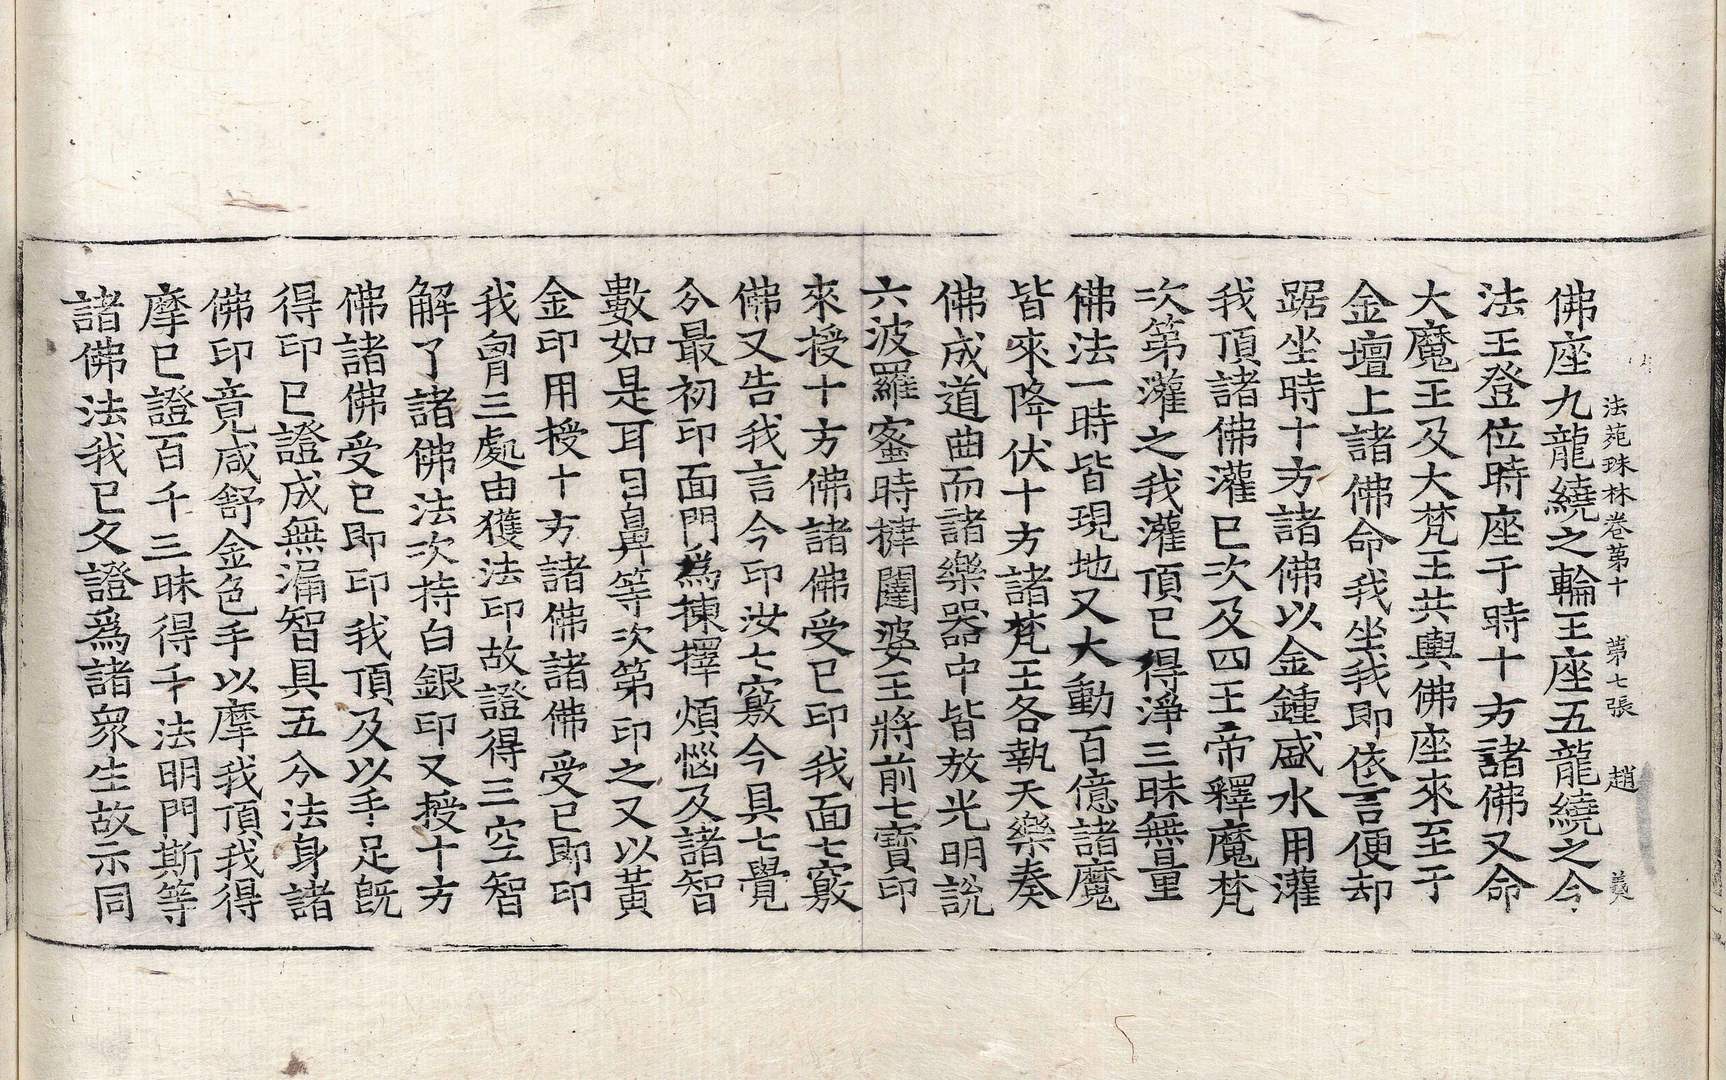 法苑珠林卷第十 第七張 趙 義
佛座九龍繞之輪王座五龍繞之今
法王登位時座于時十方諸佛又命
大魔王及大梵王共輿佛座來至于
金壇上諸佛命我坐我即依言便却
踞坐時十方諸佛以金鍾盛水用灌
我頂諸佛灌已次及四王帝釋魔梵
次第灌之我灌頂已得淨三昧無量
佛法一時皆現地又大動百億諸魔
皆來降伏十方諸梵王各執天樂奏
佛成道曲而諸樂器中皆放光明說
六波羅蜜時揵闥婆王將前七寶印
來授十方佛諸佛受已印我面七竅
佛又告我言今印汝七竅今具七覺
分最初印面門爲揀擇煩惱及諸智
數如是耳目鼻等次第印之又以黃
金印用授十方諸佛諸佛受已即印
我胷三處由獲法印故證得三空智
解了諸佛法次持白銀印又授十方
佛諸佛受已即印我頂及以手足旣
得印已證成無漏智具五分法身諸
佛印竟咸舒金色手以摩我頂我得
摩已證百千三昧得千法明門斯等
諸佛法我已久證爲諸衆生故示同